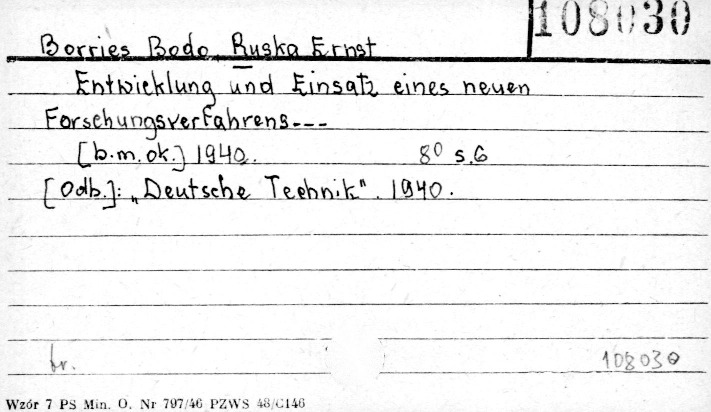 108030
Borries Bodo, Ruska Ernst
Entwicklung und Einsatz eines neuen
Forschungsverfahrens---
[b.m.ok.] 1940. 8⁰ s.6
[Odb.]: „Deutsche Technik". 1940.
br. 108030
Wzór 7 PS Min. O. Nr 797/46 PZWS 48/C146